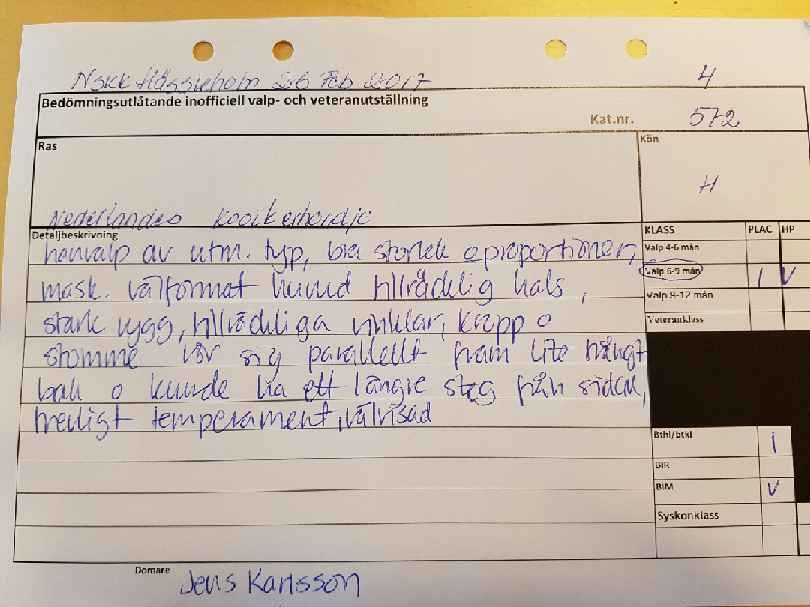 NSKK Hässleholm 26 Feb 2017
4
Bedömningsutlåtande inofficiell valp- och veteranutställning
Kat.nr. 572
Ras
Kön
H
Nederlandes kooikerhondje
Detaljbeskrivning
KLASS PLAC HP
hanvalp av utm. typ, bra storlek o proportioner,
Valp 4-6 mån
mask. välformat huvud tillräcklig hals,
Valp 6-9 mån 1 V
Valp 9-12 mån
stark rygg, tillräckliga vinklar, kropp o
Veteranklass
stomme rör sig parallellt fram lite trångt
bak o kunde ha ett längre steg från sidan,
trevligt temperament, välvisad
Bthl/btkl 1
BIR
BIM V
Syskonklass
Domare
Jens Karlsson